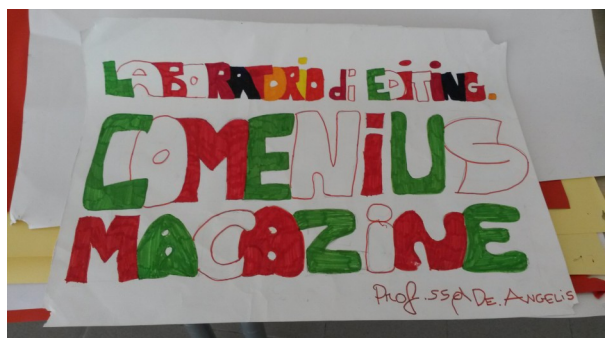 LABORATORIO di EDiTiNG.
COMENiUS
MACAZiNE
Prof.ssa De. ANGELiS